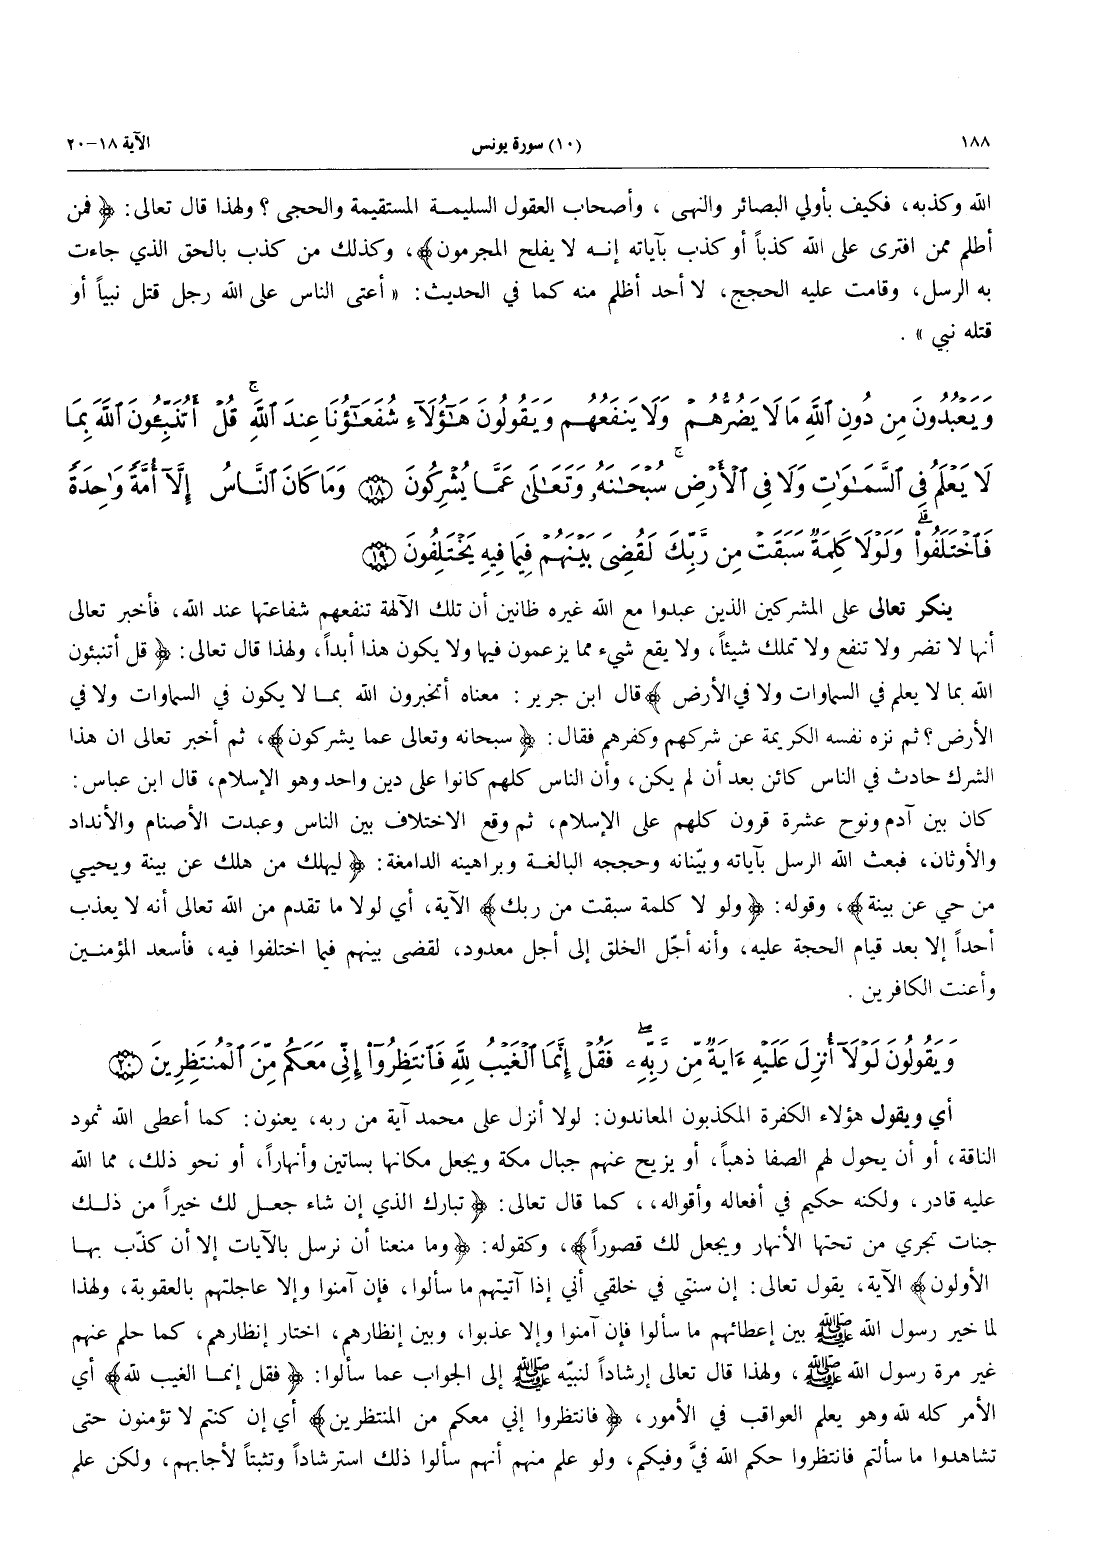 ١٨٨ (١٠) سورة يونس الآية ١٨-٢٠
الله وكذبه، فكيف بأولي البصائر والنهى ، وأصحاب العقول السليمة المستقيمة والحجى ؟ ولهذا قال تعالى: ﴿ فمن
أظلم ممن افترى على الله كذباً أو كذب بآياته إنه لا يفلح المجرمون﴾، وكذلك من كذب بالحق الذي جاءت
به الرسل، وقامت عليه الحجج، لا أحد أظلم منه كما في الحديث: « أعتى الناس على الله رجل قتل نبياً أو
قتله نبي » .
وَيَعْبُدُونَ مِن دُونِ ٱللَّهِ مَا لَا يَضُرُّهُمْ وَلَا يَنفَعُهُمْ وَيَقُولُونَ هَٰٓؤُلَآءِ شُفَعَٰٓؤُنَا عِندَ ٱللَّهِ ۚ قُلْ أَتُنَبِّـُٔونَ ٱللَّهَ بِمَا
لَا يَعْلَمُ فِى ٱلسَّمَٰوَٰتِ وَلَا فِى ٱلْأَرْضِ ۚ سُبْحَٰنَهُۥ وَتَعَٰلَىٰ عَمَّا يُشْرِكُونَ ﴿١٨﴾ وَمَا كَانَ ٱلنَّاسُ إِلَّآ أُمَّةً وَٰحِدَةً
فَٱخْتَلَفُوا۟ ۚ وَلَوْلَا كَلِمَةٌ سَبَقَتْ مِن رَّبِّكَ لَقُضِىَ بَيْنَهُمْ فِيمَا فِيهِ يَخْتَلِفُونَ ﴿١٩﴾
ينكر تعالى على المشركين الذين عبدوا مع الله غيره ظانين أن تلك الآلهة تنفعهم شفاعتها عند الله، فأخبر تعالى
أنها لا تضر ولا تنفع ولا تملك شيئاً، ولا يقع شيء مما يزعمون فيها ولا يكون هذا أبداً، ولهذا قال تعالى: ﴿ قل أتنبئون
الله بما لا يعلم في السماوات ولا في الأرض ﴾ قال ابن جرير : معناه أتخبرون الله بما لا يكون في السماوات ولا في
الأرض؟ ثم نزه نفسه الكريمة عن شركهم وكفرهم فقال: ﴿ سبحانه وتعالى عما يشركون﴾، ثم أخبر تعالى ان هذا
الشرك حادث في الناس كائن بعد أن لم يكن، وأن الناس كلهم كانوا على دين واحد وهو الإسلام، قال ابن عباس:
كان بين آدم ونوح عشرة قرون كلهم على الإسلام، ثم وقع الاختلاف بين الناس وعبدت الأصنام والأنداد
والأوثان، فبعث الله الرسل بآياته وبيّنانه وحججه البالغة وبراهينه الدامغة: ﴿ ليهلك من هلك عن بينة ويحيي
من حي عن بينة﴾، وقوله: ﴿ولو لا كلمة سبقت من ربك﴾ الآية، أي لولا ما تقدم من الله تعالى أنه لا يعذب
أحداً إلا بعد قيام الحجة عليه، وأنه أجّل الخلق إلى أجل معدود، لقضى بينهم فيما اختلفوا فيه، فأسعد المؤمنين
وأعنت الكافرين .
وَيَقُولُونَ لَوْلَآ أُنزِلَ عَلَيْهِ ءَايَةٌ مِّن رَّبِّهِۦ ۖ فَقُلْ إِنَّمَا ٱلْغَيْبُ لِلَّهِ فَٱنتَظِرُوٓا۟ إِنِّى مَعَكُم مِّنَ ٱلْمُنتَظِرِينَ ﴿٢٠﴾
أي ويقول هؤلاء الكفرة المكذبون المعاندون: لولا أنزل على محمد آية من ربه، يعنون: كما أعطى الله ثمود
الناقة، أو أن يحول لهم الصفا ذهباً، أو يزيح عنهم جبال مكة ويجعل مكانها بساتين وأنهاراً، أو نحو ذلك، مما الله
عليه قادر، ولكنه حكيم في أفعاله وأقواله،، كما قال تعالى: ﴿ تبارك الذي إن شاء جعل لك خيراً من ذلك
جنات تجري من تحتها الأنهار ويجعل لك قصوراً﴾، وكقوله: ﴿وما منعنا أن نرسل بالآيات إلا أن كذّب بها
الأولون﴾ الآية، يقول تعالى: إن سنتي في خلقي أني إذا آتيتهم ما سألوا، فإن آمنوا وإلا عاجلتهم بالعقوبة، ولهذا
لما خير رسول الله ﷺ بين إعطائهم ما سألوا فإن آمنوا وإلا عذبوا، وبين إنظارهم، اختار إنظارهم، كما حلم عنهم
غير مرة رسول الله ﷺ، ولهذا قال تعالى إرشاداً لنبيّه ﷺ إلى الجواب عما سألوا: ﴿ فقل إنما الغيب لله﴾ أي
الأمر كله لله وهو يعلم العواقب في الأمور، ﴿ فانتظروا إني معكم من المنتظرين﴾ أي إن كنتم لا تؤمنون حتى
تشاهدوا ما سألتم فانتظروا حكم الله فيَّ وفيكم، ولو علم منهم أنهم سألوا ذلك استرشاداً وتثبتاً لأجابهم، ولكن علم